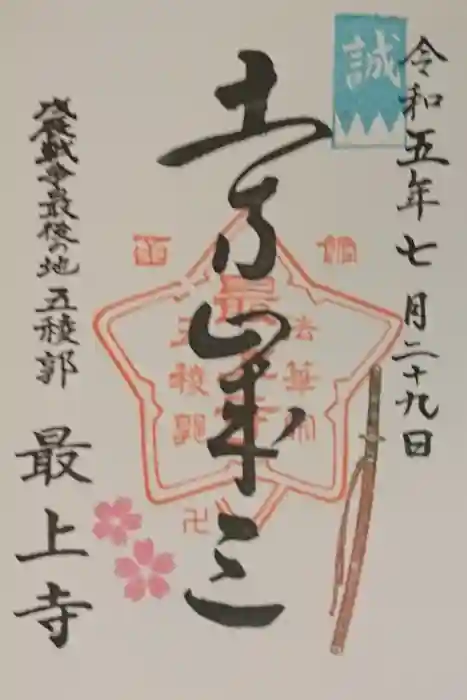 誠
令和五年七月二十九日
土方歳三
戊辰戦争最後の地 五稜郭
最上寺
最
法華
五稜郭
卍